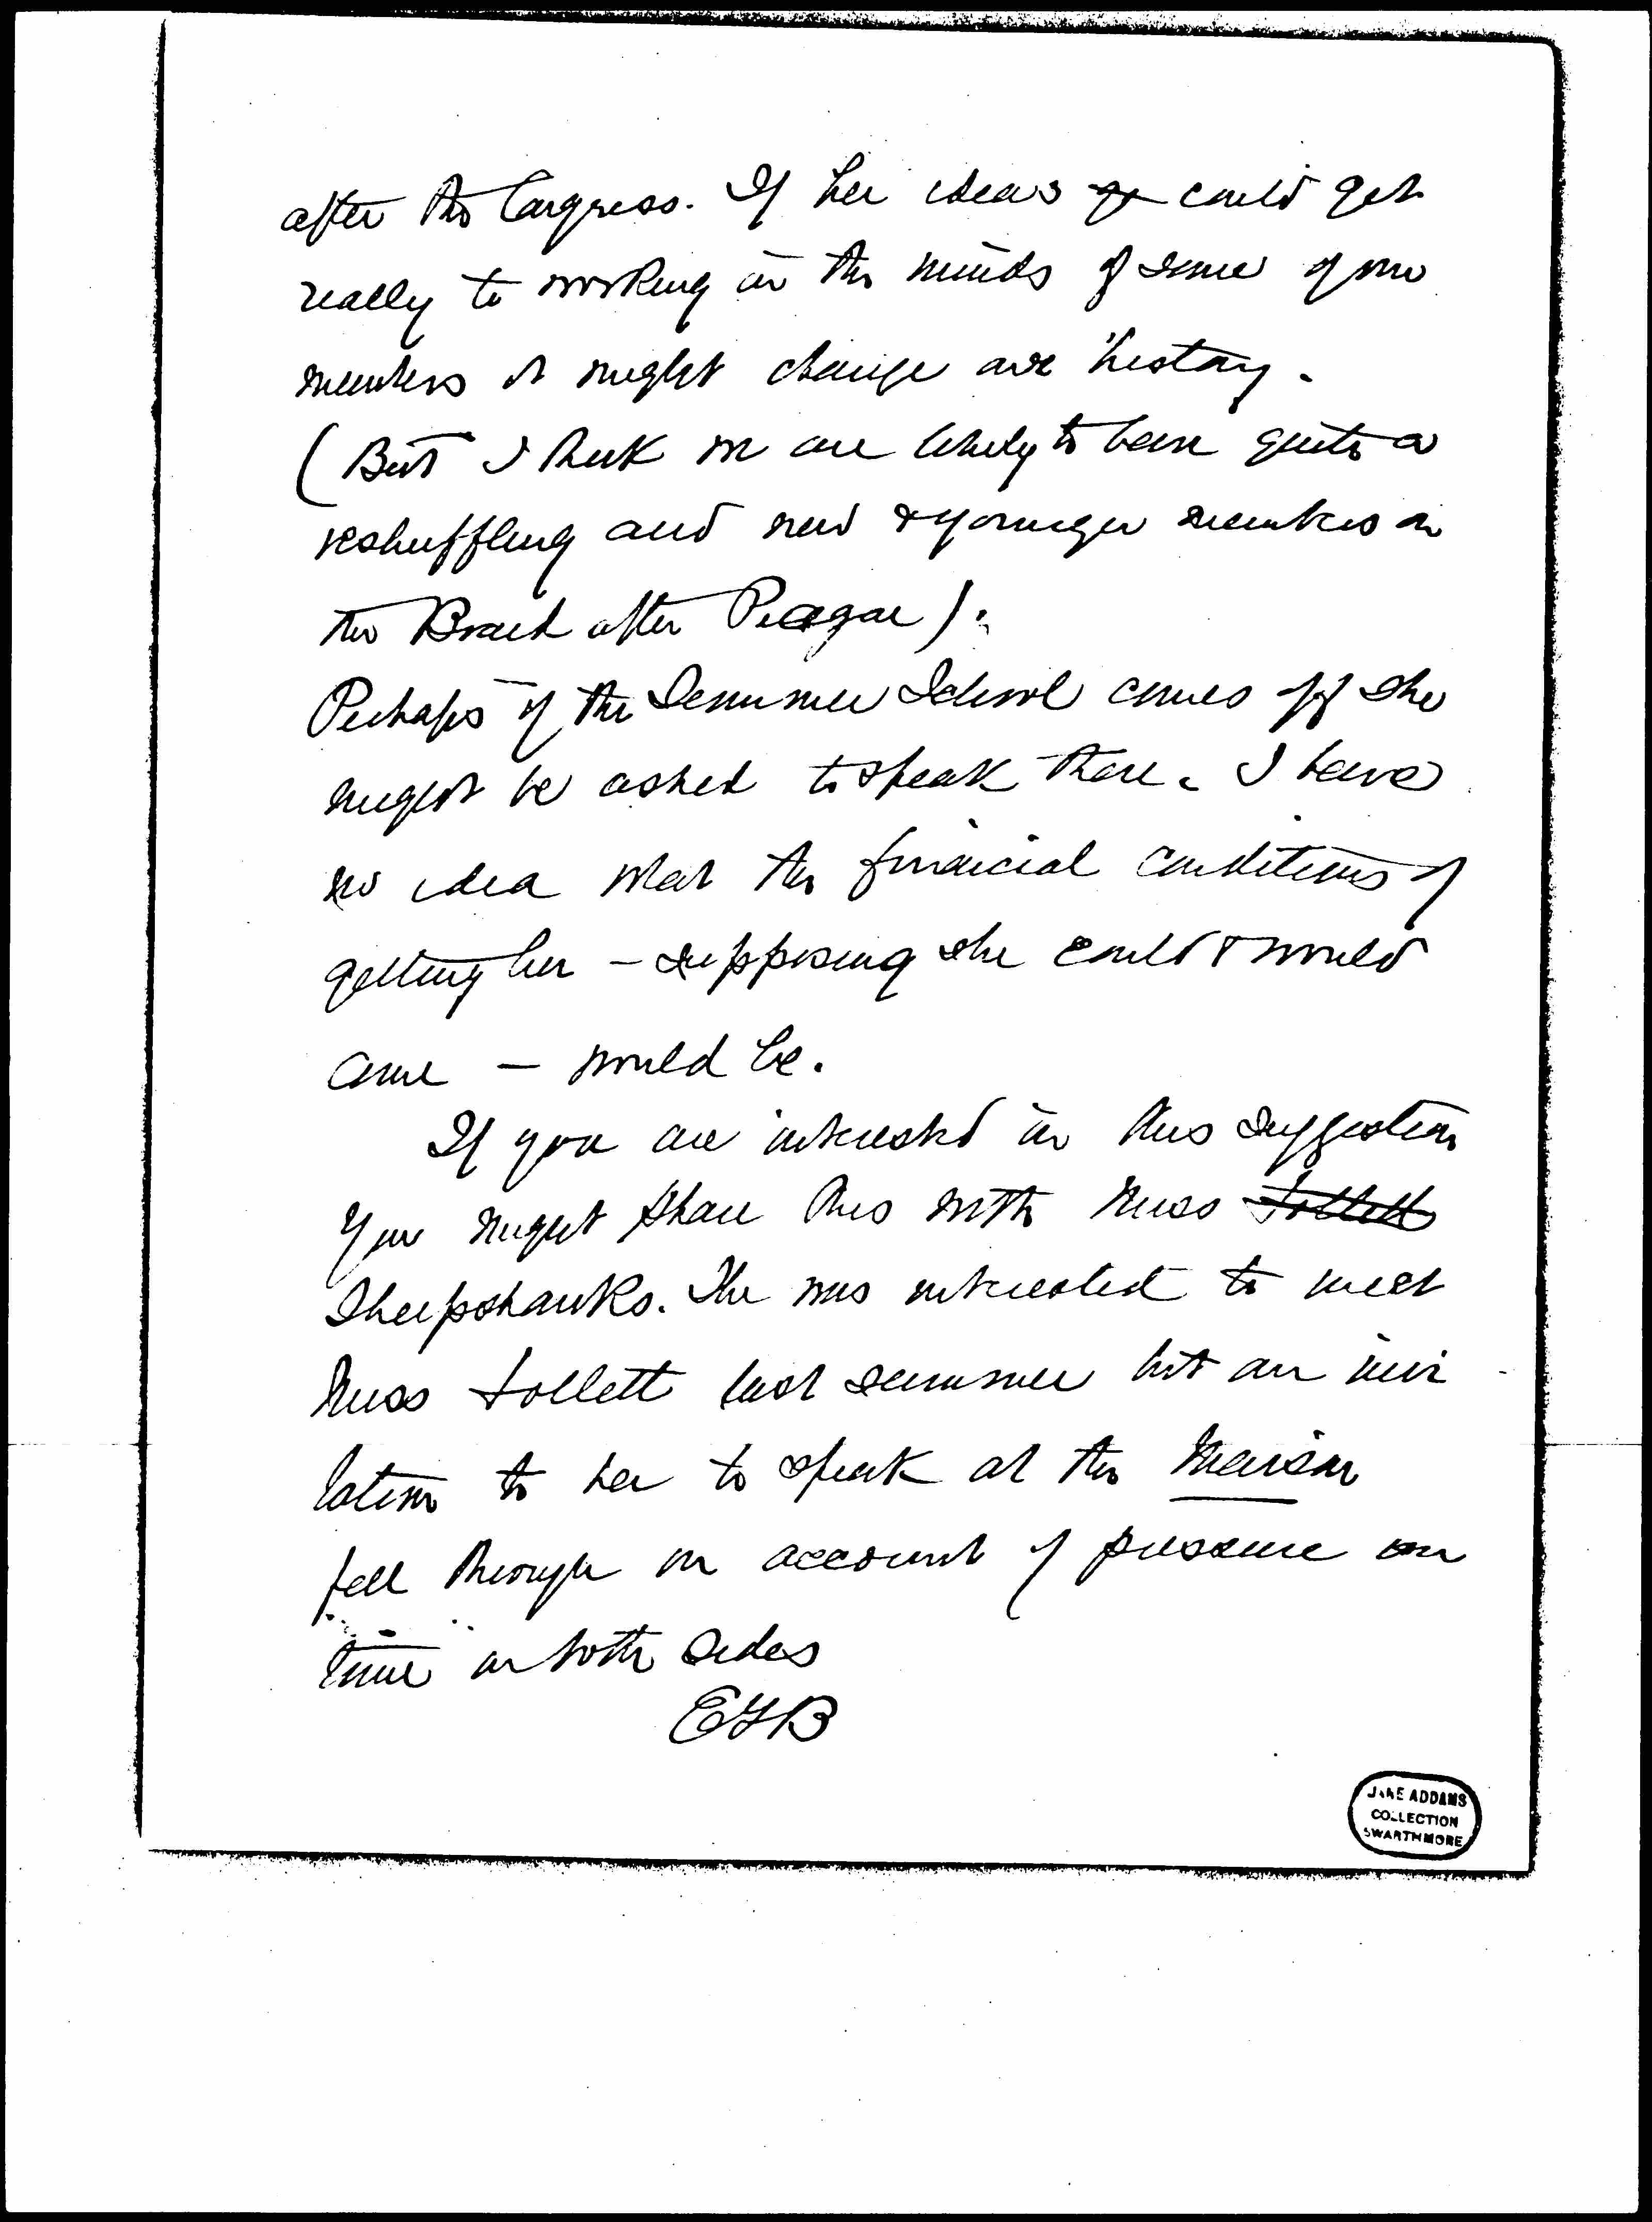 after the Congress. If her ideas ge could get
really to working in the minds of some of our
members it might change our history.
(But I think we are likely to have quite a
reshuffling and new & younger members on
the Board after Prague).
Perhaps if the Summer School comes off she
might be asked to speak there. I have
no idea what the financial conditions of
getting her – supposing she could & would
come – would be.
If you are interested in this suggestion
you might share this with Miss Follett
Sheepshanks. She was interested to meet
Miss Follett last summer but an invi
tation to her to speak at the Maison
fell through on account of pressure on
time on both sides
EGB
JANE ADDAMS
COLLECTION
SWARTHMORE